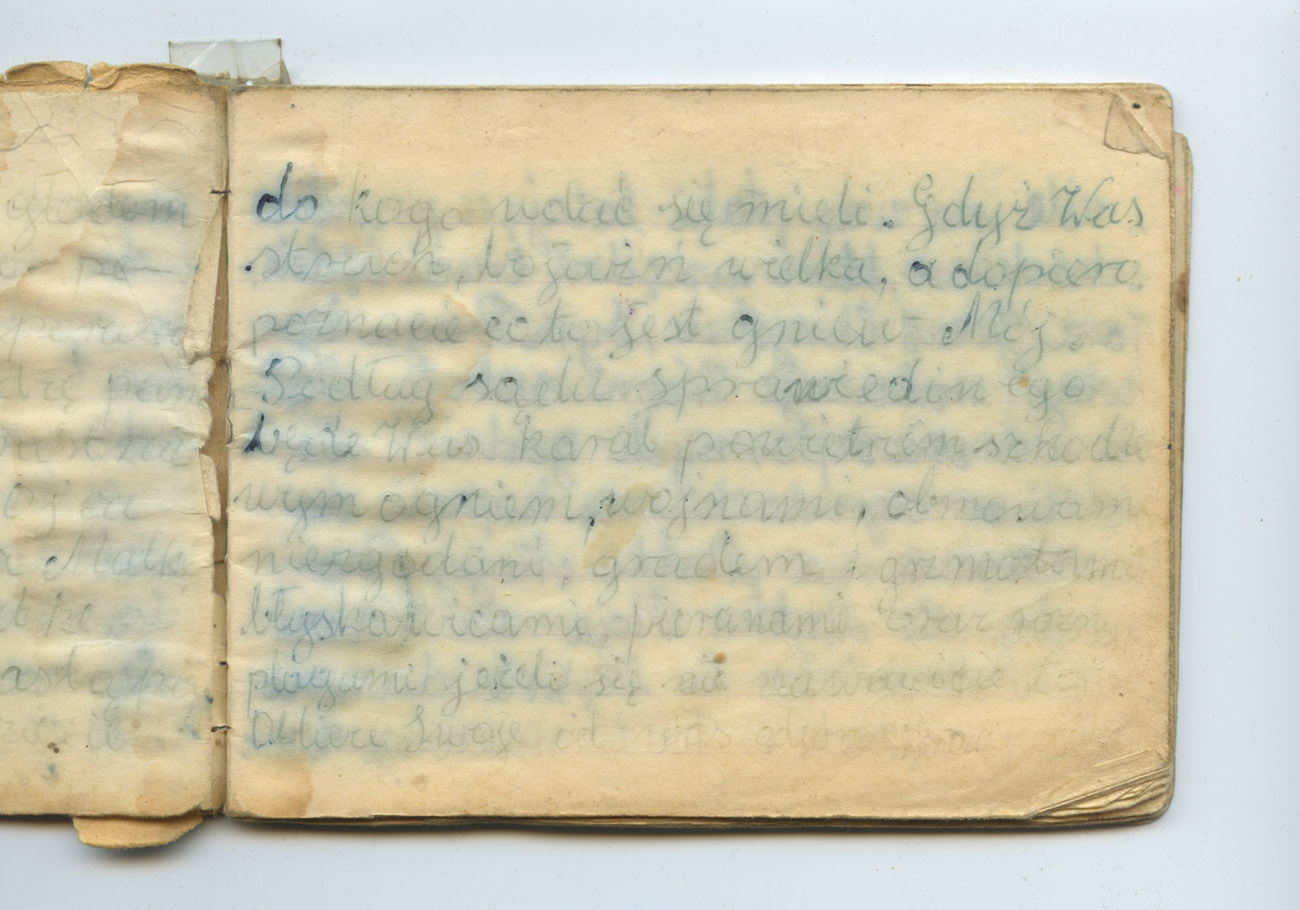 głodem
po-
drę pam
Ojca
a Matk
do kogo udać się mieli. Gdyż Was
strach, bojaźń wielka, a dopiero
poznacie co to jest gniew Mój.
Podług sądu sprawiedinego
będe Was karał powietrzem szkodli
wym ogniem, wojnami, obmowami
niezgodami, gradem i grzmotami
błyskawicami, pioranami oraz rozny
plagami jeżeli się nie nawrócicie to
Odbiere Swoje od was